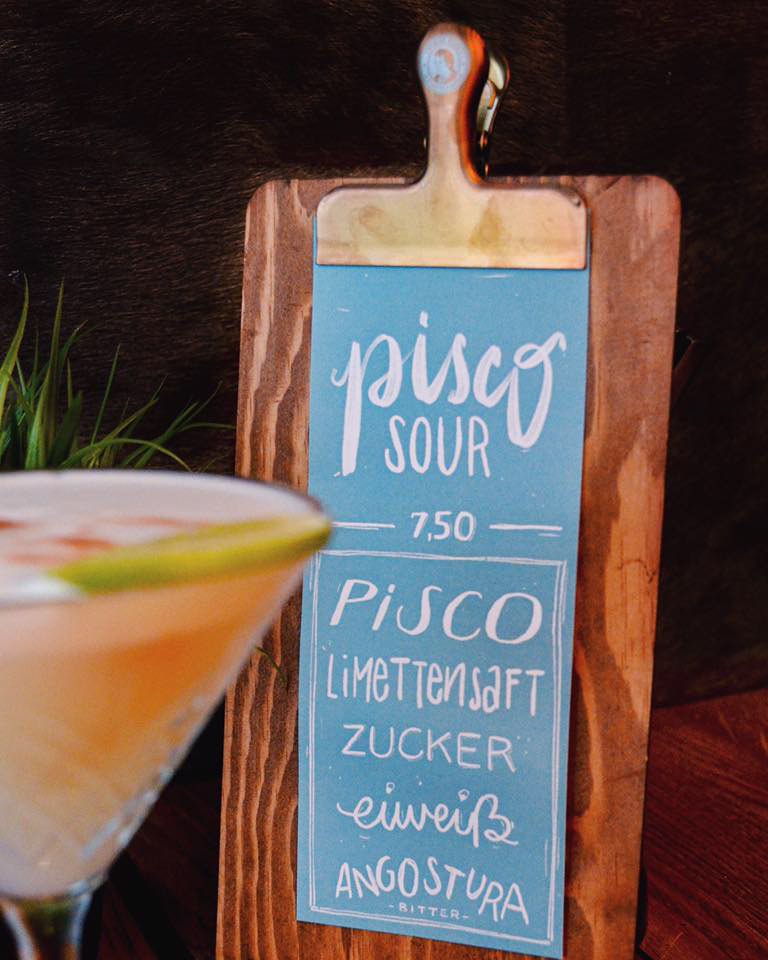 pisco
SOUR
7,50
PISCO
LiMETTENSAFT
ZUCKER
eiweiß
ANGOSTURA
-BITTER-